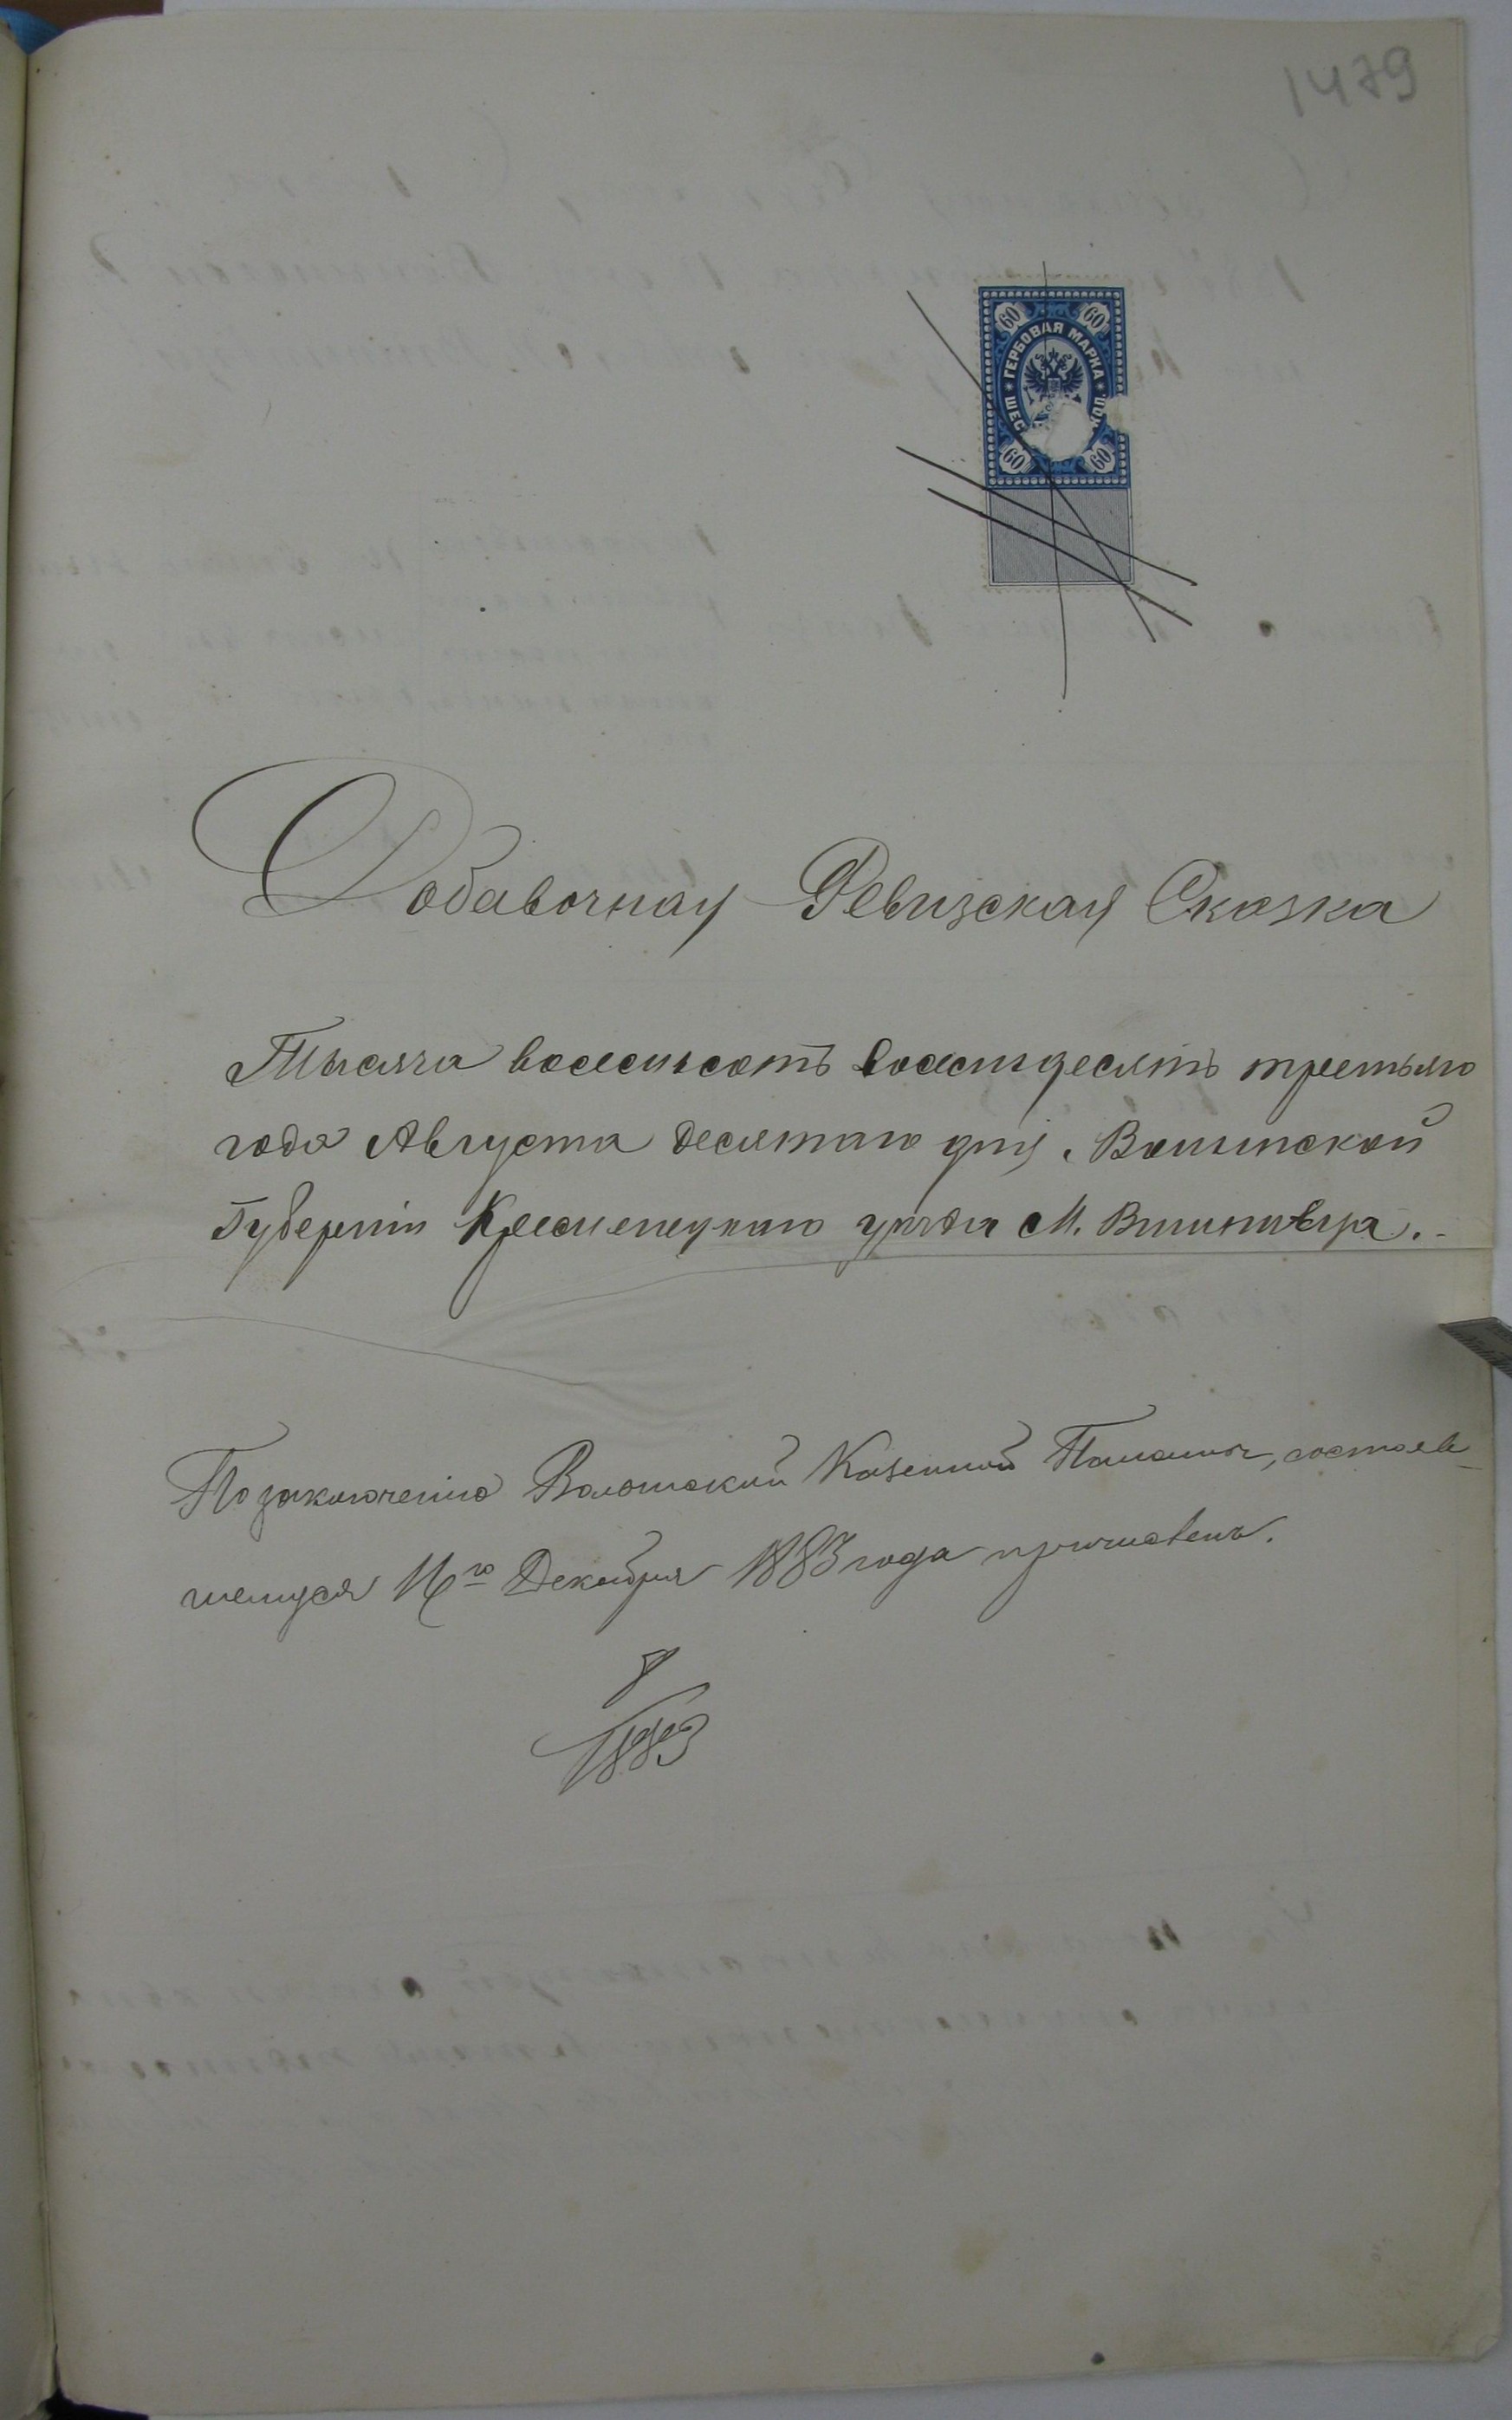 1479
60 60
ГЕРБОВАЯ МАРКА
ШЕС КОП
60 60
Добавочная Ревизская Сказка
Тысяча восемьсотъ восемьдесятъ третьяго
года Августа десятаго дня, Волынской
Губерніи Кремѣнецкаго уѣзда М. Вишневца.
По заключенію Волынской Казенной Палаты, состояв-
шемуся 16го Декабря 1883 года причисленъ.
1883